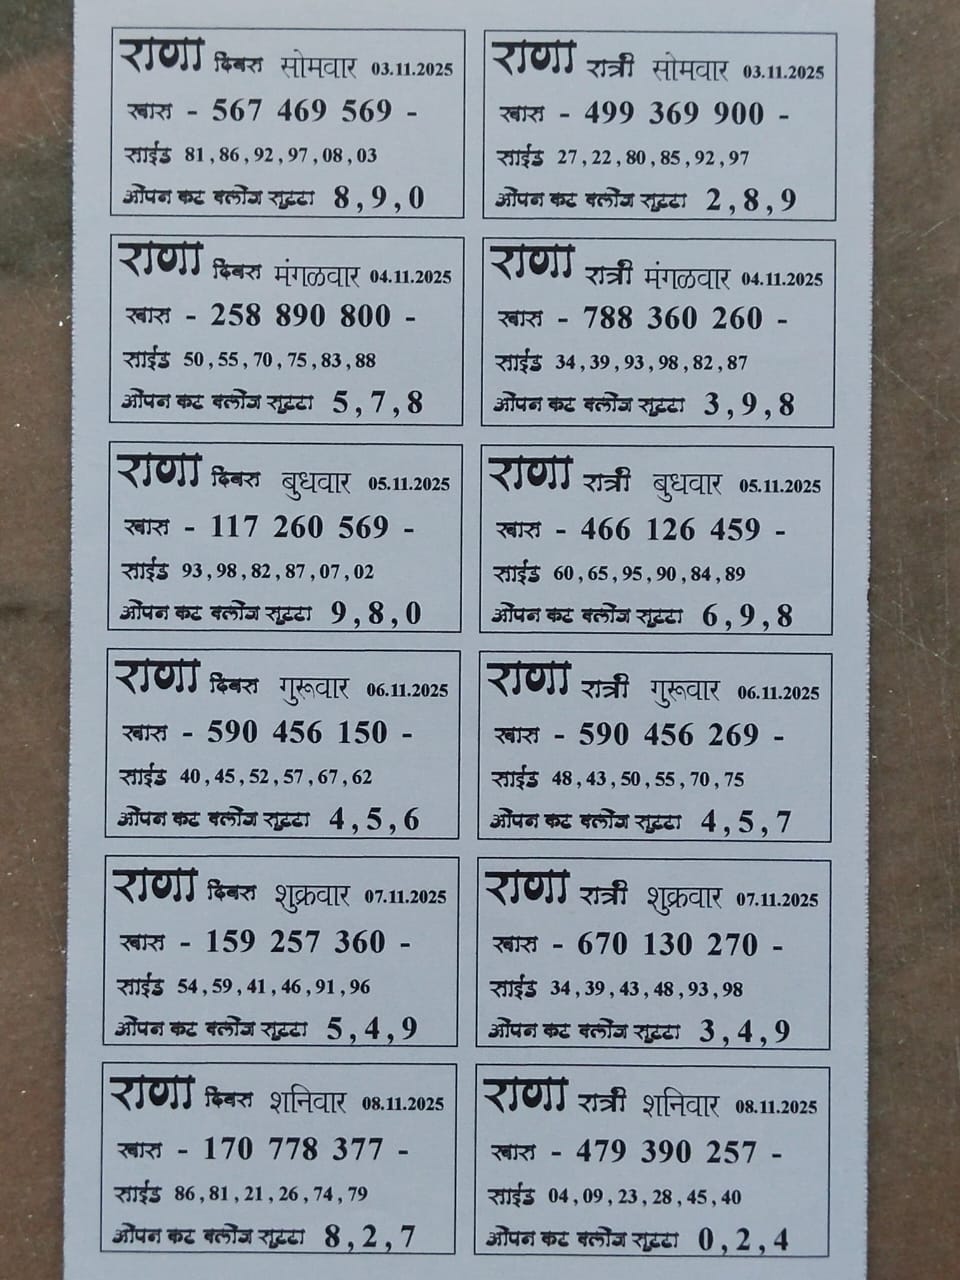 राणा दिवस सोमवार 03.11.2025
खास - 567 469 569 -
साईड 81 , 86 , 92 , 97 , 08 , 03
ओपन कट क्लोज सुट्टा 8 , 9 , 0
राणा रात्री सोमवार 03.11.2025
खास - 499 369 900 -
साईड 27 , 22 , 80 , 85 , 92 , 97
ओपन कट क्लोज सुट्टा 2 , 8 , 9
राणा दिवस मंगळवार 04.11.2025
खास - 258 890 800 -
साईड 50 , 55 , 70 , 75 , 83 , 88
ओपन कट क्लोज सुट्टा 5 , 7 , 8
राणा रात्री मंगळवार 04.11.2025
खास - 788 360 260 -
साईड 34 , 39 , 93 , 98 , 82 , 87
ओपन कट क्लोज सुट्टा 3 , 9 , 8
राणा दिवस बुधवार 05.11.2025
खास - 117 260 569 -
साईड 93 , 98 , 82 , 87 , 07 , 02
ओपन कट क्लोज सुट्टा 9 , 8 , 0
राणा रात्री बुधवार 05.11.2025
खास - 466 126 459 -
साईड 60 , 65 , 95 , 90 , 84 , 89
ओपन कट क्लोज सुट्टा 6 , 9 , 8
राणा दिवस गुरूवार 06.11.2025
खास - 590 456 150 -
साईड 40 , 45 , 52 , 57 , 67 , 62
ओपन कट क्लोज सुट्टा 4 , 5 , 6
राणा रात्री गुरूवार 06.11.2025
खास - 590 456 269 -
साईड 48 , 43 , 50 , 55 , 70 , 75
ओपन कट क्लोज सुट्टा 4 , 5 , 7
राणा दिवस शुक्रवार 07.11.2025
खास - 159 257 360 -
साईड 54 , 59 , 41 , 46 , 91 , 96
ओपन कट क्लोज सुट्टा 5 , 4 , 9
राणा रात्री शुक्रवार 07.11.2025
खास - 670 130 270 -
साईड 34 , 39 , 43 , 48 , 93 , 98
ओपन कट क्लोज सुट्टा 3 , 4 , 9
राणा दिवस शनिवार 08.11.2025
खास - 170 778 377 -
साईड 86 , 81 , 21 , 26 , 74 , 79
ओपन कट क्लोज सुट्टा 8 , 2 , 7
राणा रात्री शनिवार 08.11.2025
खास - 479 390 257 -
साईड 04 , 09 , 23 , 28 , 45 , 40
ओपन कट क्लोज सुट्टा 0 , 2 , 4